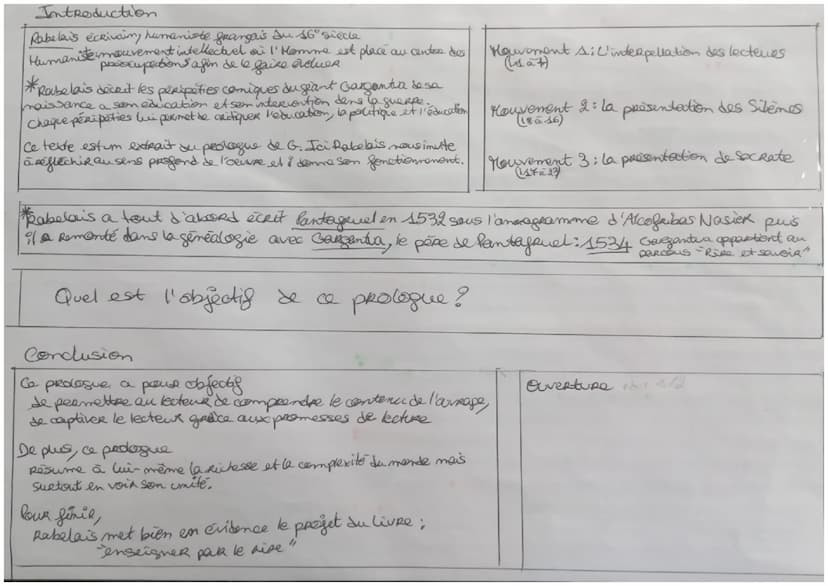 Introduction
Rabelais écrivain, humaniste français du 16e siècle
Humanisme: mouvement intellectuel où l'Homme est placé au centre des
préoccupations afin de le faire évoluer
*Rabelais décrit les péripéties comiques du géant Gargantua de sa
naissance a son éducation et son intervention dans la guerre.
Chaque péripéties lui permet de critiquer l'éducation, la politique et l'éducation
Ce texte est un extrait du prologue de G. Ici Rabelais nous invite
à réfléchir au sens profond de l'oeuvre et donne son fonctionnement.
Mouvement 1: L'interpellation des lecteurs
Mouvement 2: La présentation des Silènes
Mouvement 3: La présentation de Socrate
*Rabelais a tout d'abord écrit Pantagruel en 1532 sous l'anagramme d'Alcofribas Nasier puis
il a remonté dans la généalogie avec Gargantua, le père de Pantagruel: 1534 Gargantua appartient au
parcours "Rire et savoir"
Quel est l'objectif de ce prologue?
Conclusion
Ce prologue a pour objectif
de permettre au lecteur de comprendre le contenu de l'ouvrage,
de captiver le lecteur grâce aux promesses de lecture
De plus, ce prologue
résume à lui-même la richesse et la complexité du monde mais
surtout en voir son unité.
Pour finir,
Rabelais met bien en évidence le projet du livre:
"enseigner par le rire"
Ouverture